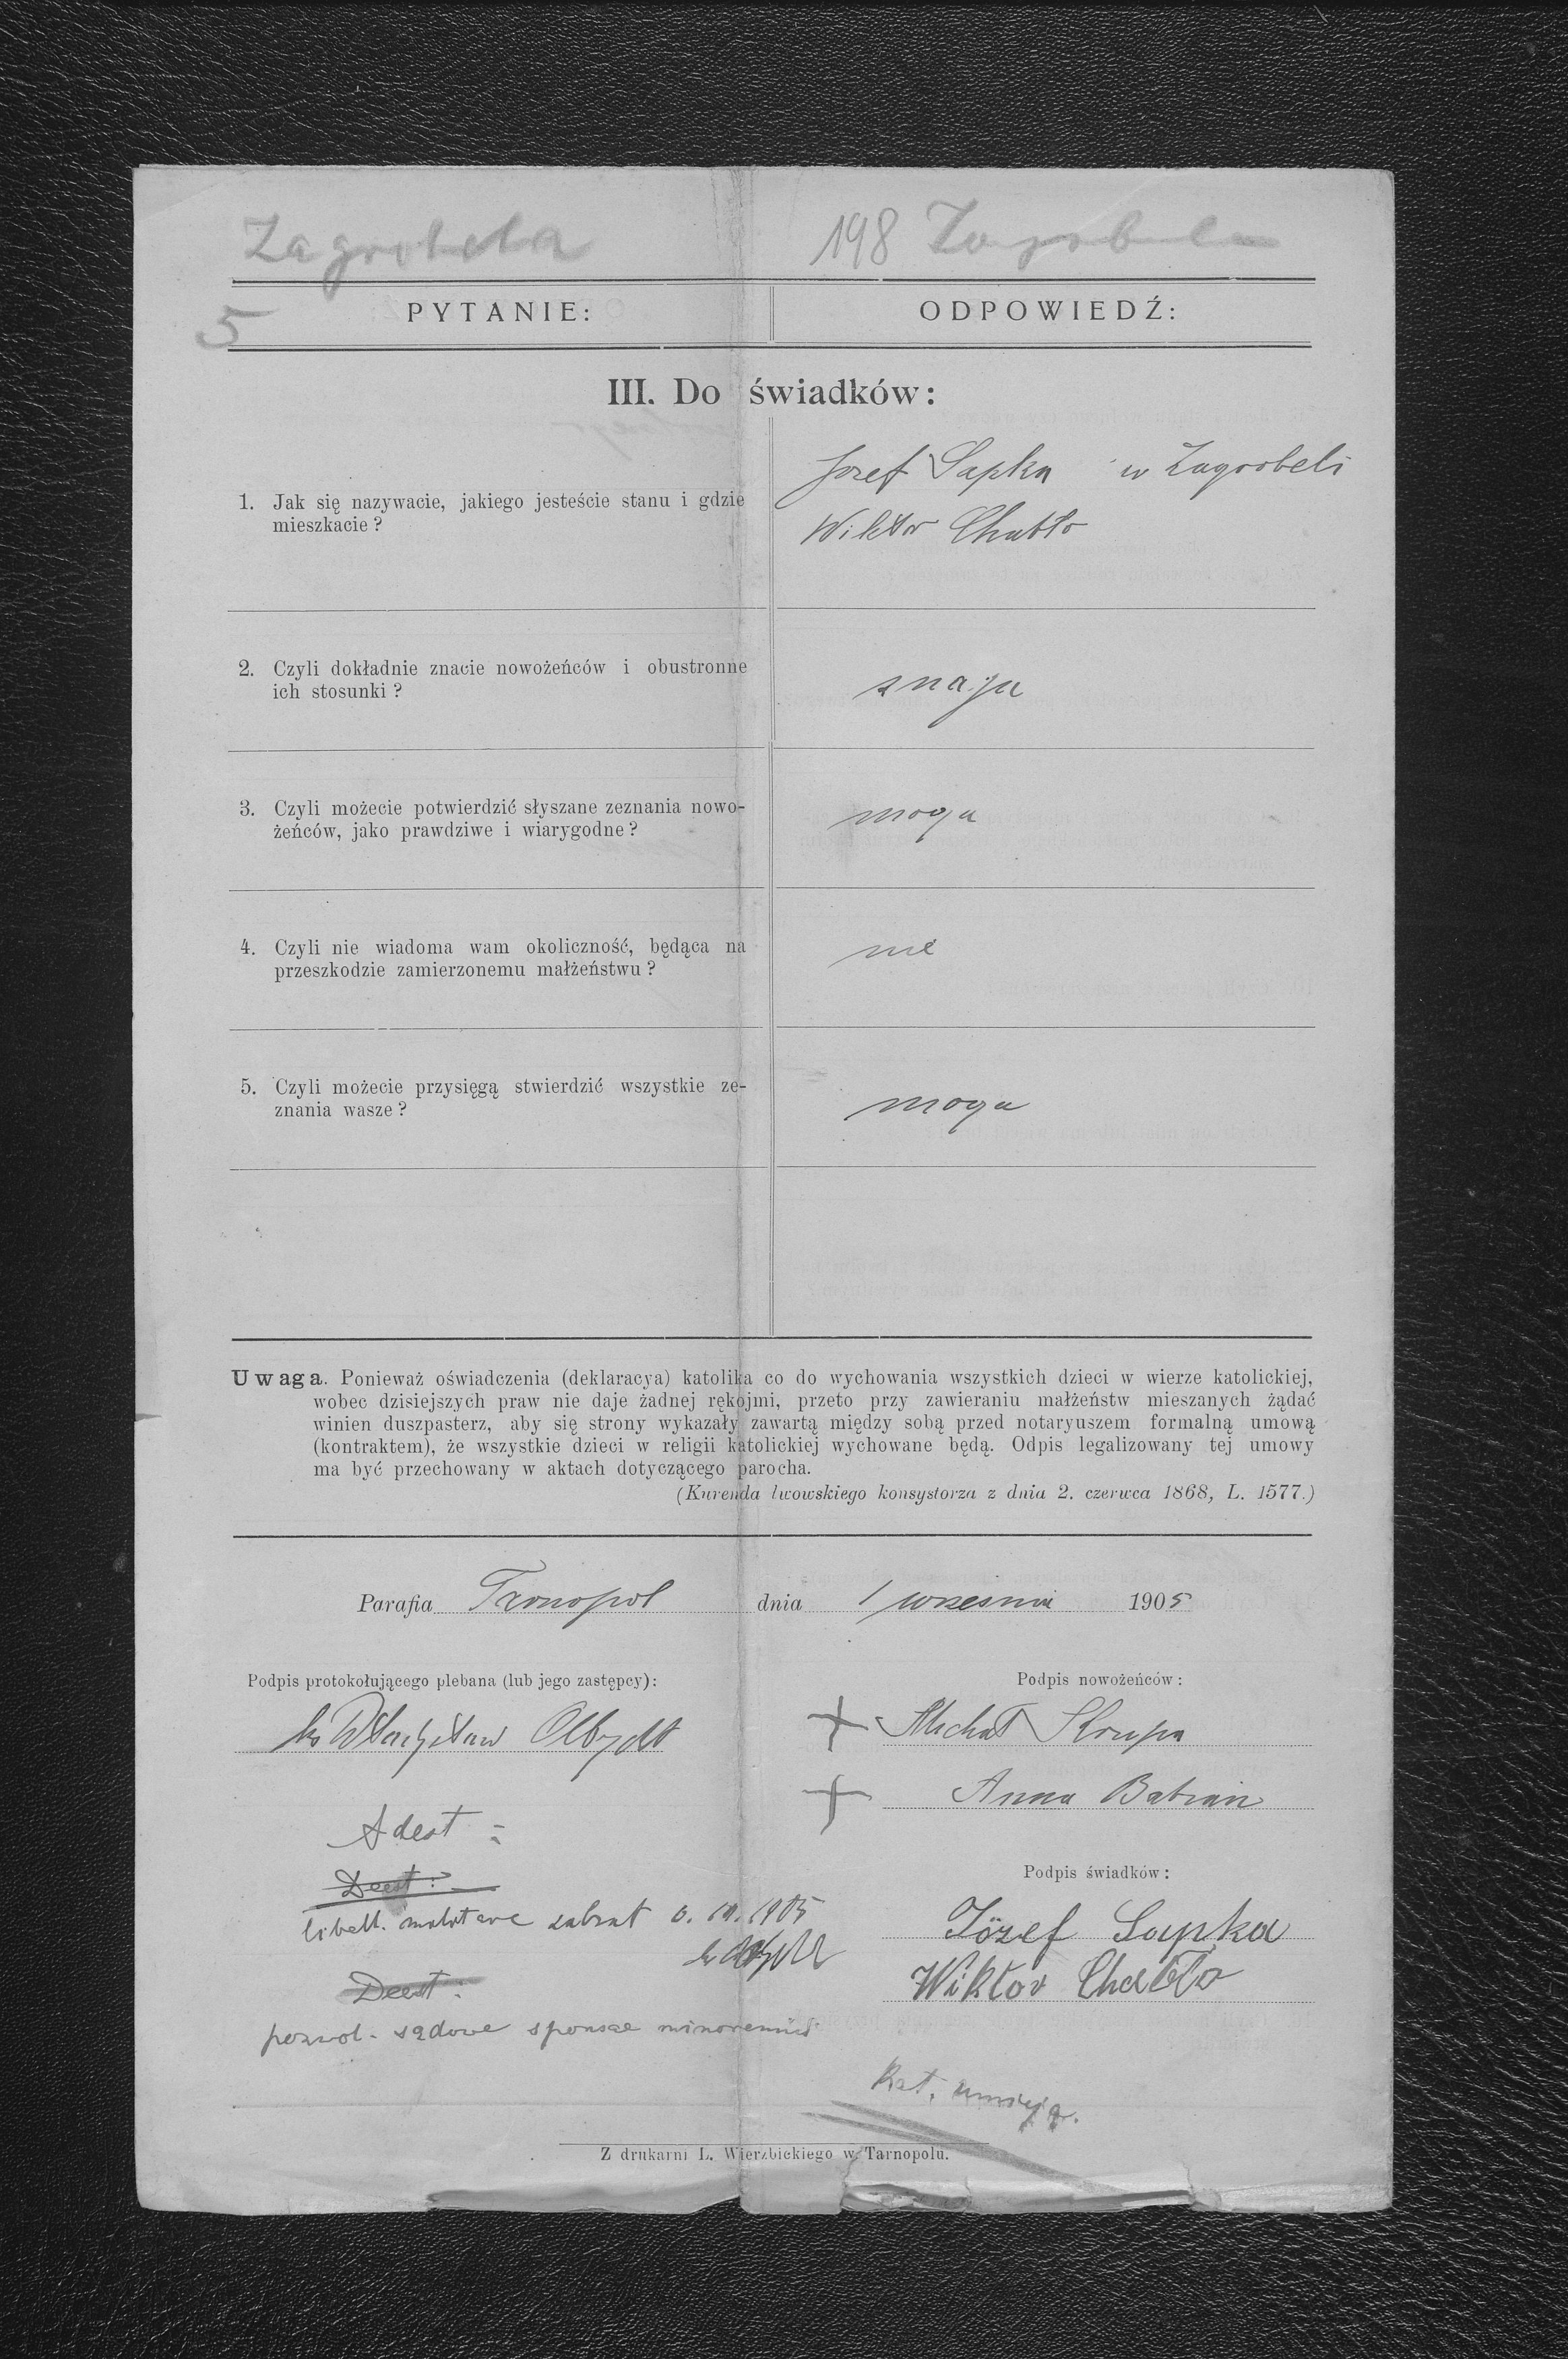 Zagrobela
198 Zagrobela
5
PYTANIE:
ODPOWIEDŹ:
III. Do świadków:
1. Jak się nazywacie, jakiego jesteście stanu i gdzie
mieszkacie?
Jozef Sapka w Zagrobeli
Wiktor Chabło
2. Czyli dokładnie znacie nowożeńców i obustronne
ich stosunki?
znaja
3. Czyli możecie potwierdzić słyszane zeznania nowo-
żeńców, jako prawdziwe i wiarygodne?
moga
4. Czyli nie wiadoma wam okoliczność, będąca na
przeszkodzie zamierzonemu małżeństwu?
nie
5. Czyli możecie przysięgą stwierdzić wszystkie ze-
znania wasze?
moga
Uwaga. Ponieważ oświadczenia (deklaracya) katolika co do wychowania wszystkich dzieci w wierze katolickiej,
wobec dzisiejszych praw nie daje żadnej rękojmi, przeto przy zawieraniu małżeństw mieszanych żądać
winien duszpasterz, aby się strony wykazały zawartą między sobą przed notaryuszem formalną umową
(kontraktem), że wszystkie dzieci w religii katolickiej wychowane będą. Odpis legalizowany tej umowy
ma być przechowany w aktach dotyczącego parocha.
(Kurenda lwowskiego konsystorza z dnia 2. czerwca 1868, L. 1577.)
Parafia Tarnopol dnia 1 wrzesnia 1905
Podpis protokołującego plebana (lub jego zastępcy):
Podpis nowożeńców:
ks Władysław
+ Michał Skrupa
+ Anna
Adest:
Deest:
Podpis świadków:
libell. zabrat 1905
Józef Sapka
Wiktor Chabło
Deest:
pozwol. sądowe sponsae
Kat. umieją.
Z drukarni L. Wierzbickiego w Tarnopolu.